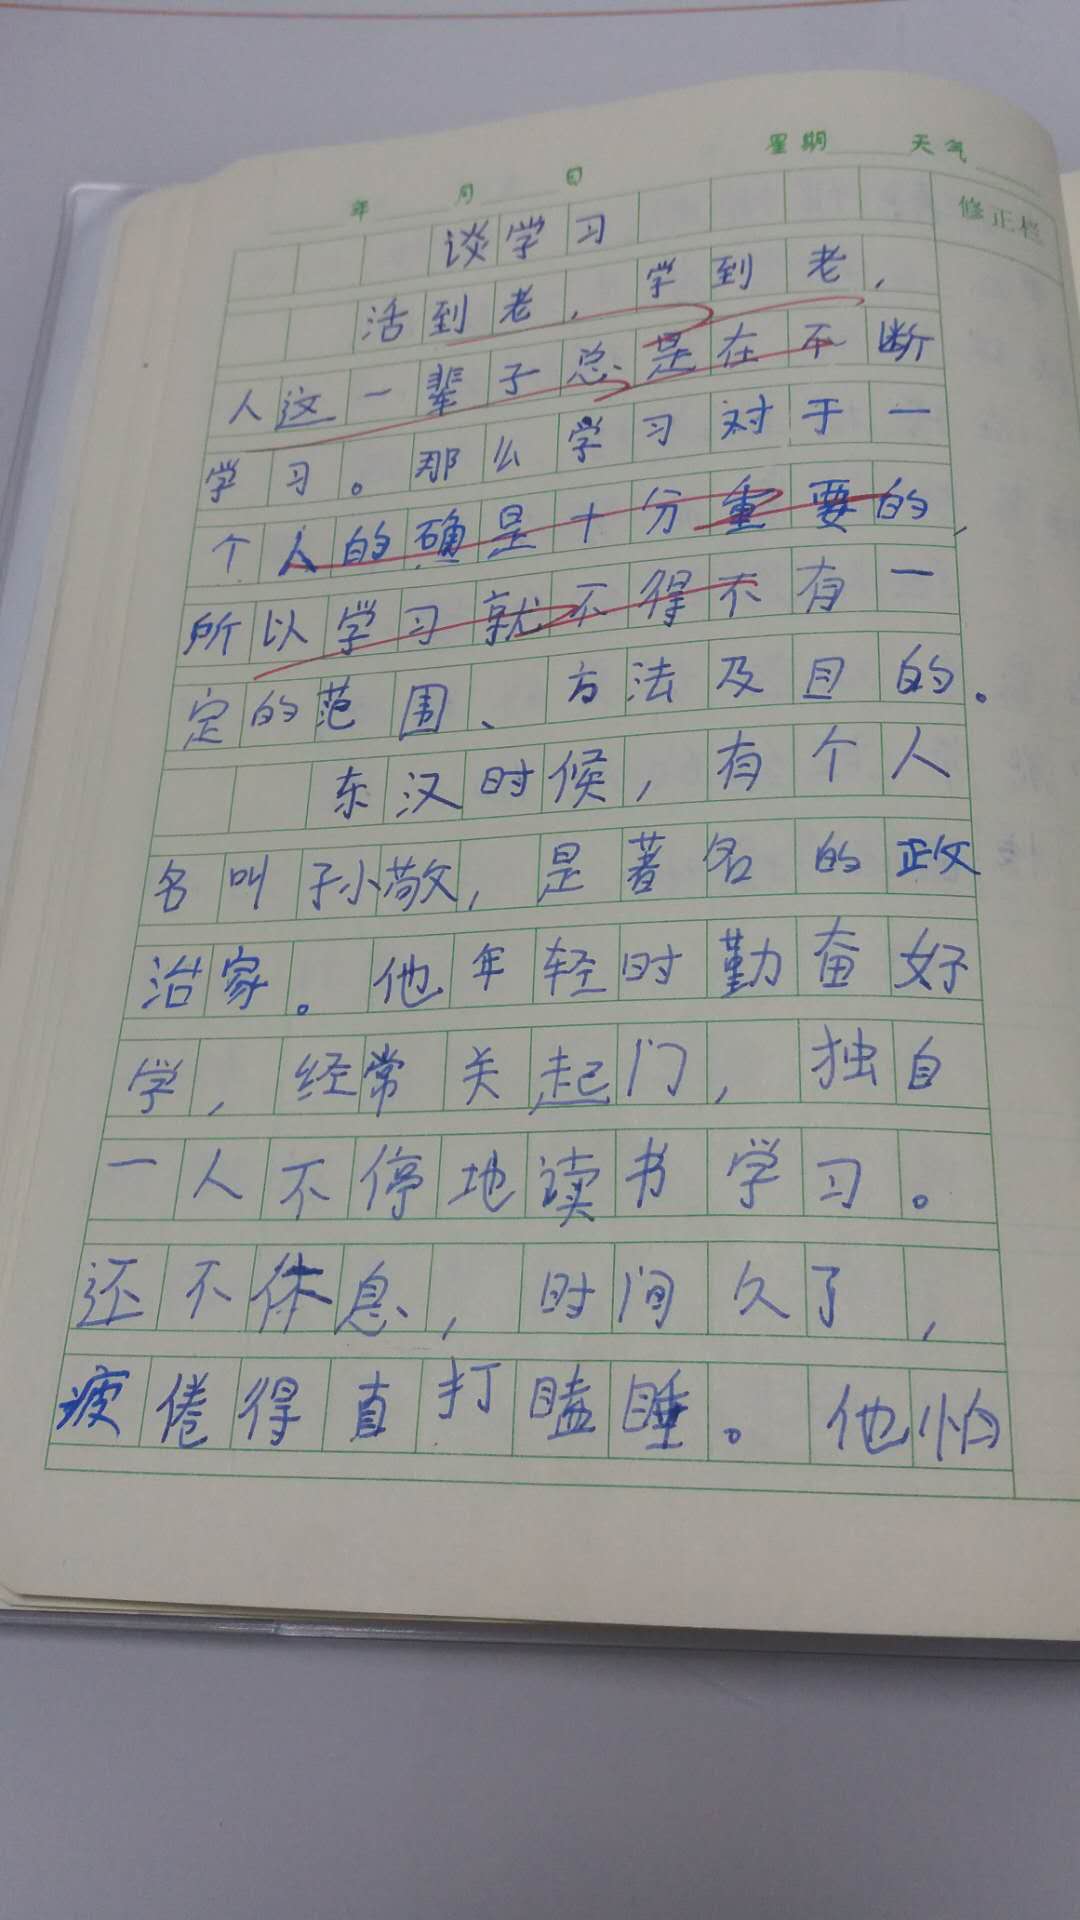 年 月 日 星期 天气
修正栏
谈学习
活到老，学到老，
人这一辈子总是在不断
学习。那么学习对于一
个人的确是十分重要的，
所以学习就不得不有一
定的范围、方法及目的。
东汉时候，有个人
名叫孙敬，是著名的政
治家。他年轻时勤奋好
学，经常关起门，独自
一人不停地读书学习。
还不休息，时间久了，
疲倦得直打瞌睡。他怕